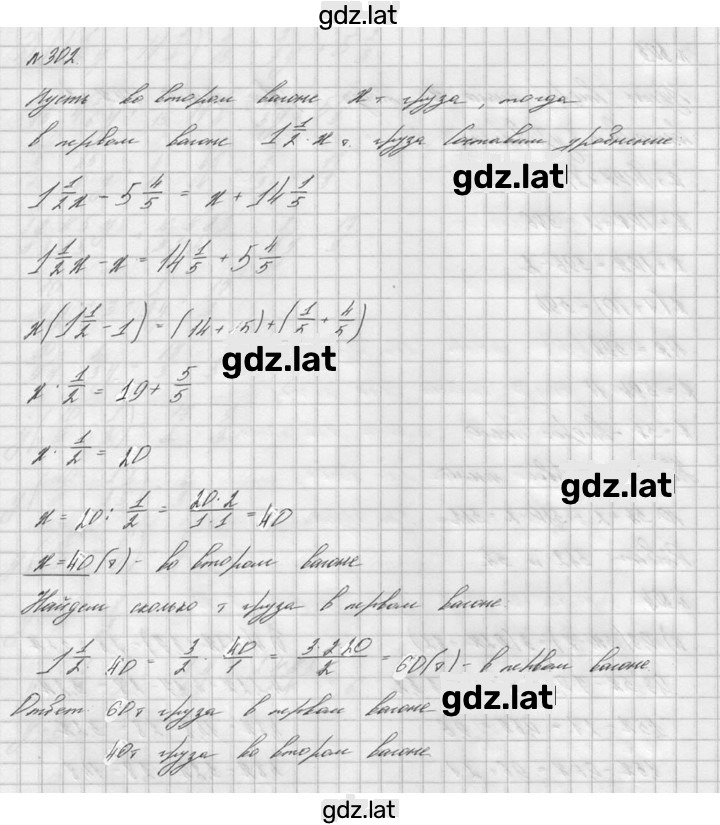 gdz.lat
№302.
Пусть во втором вагоне x т груза, тогда
в первом вагоне 1 1/2 · x т. груза Составим уравнение
gdz.lat
1 1/2 x - 5 4/5 = x + 14 1/5
1 1/2 x - x = 14 1/5 + 5 4/5
x(1 1/2 - 1) = (14 + 5) + (1/5 + 4/5)
gdz.lat
x · 1/2 = 19 + 5/5
x · 1/2 = 20
gdz.lat
x = 20 : 1/2 = 20·2/1·1 = 40
x = 40(т) - во втором вагоне
Найдем сколько т груза в первом вагоне
1 1/2 · 40 = 3/2 · 40/1 = 3·2·20/2 = 60(т) - в первом вагоне
gdz.lat
Ответ 60т груза в первом вагоне
40т груза во втором вагоне
gdz.lat